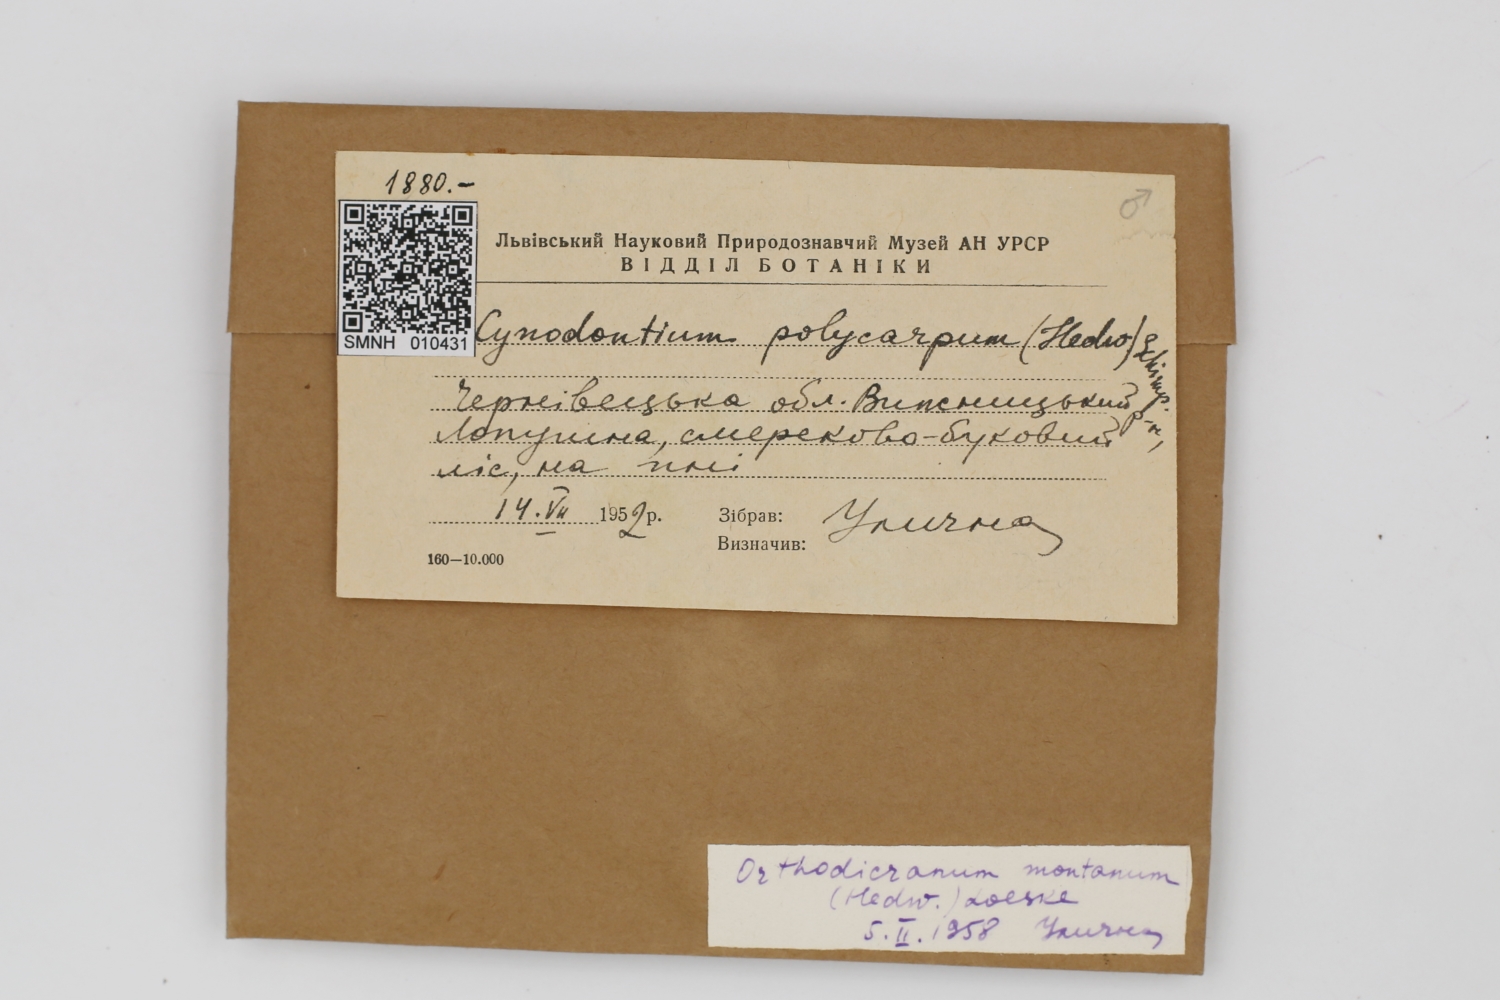 1880.-
SMNH 010431
♂
Львівський Науковий Природознавчий Музей АН УРСР
ВІДДІЛ БОТАНІКИ
Cynodontium polycarpum (Hedw) Schimp.
Чернівецька обл. Вижницький р-н,
Лопушна, смереково-буковий
ліс, на пні
14.VII 1952 р.
Зібрав: Улична
Визначив:
160—10.000
Orthodicranum montanum
(Hedw.) Loeske
5.II.1958 Улична